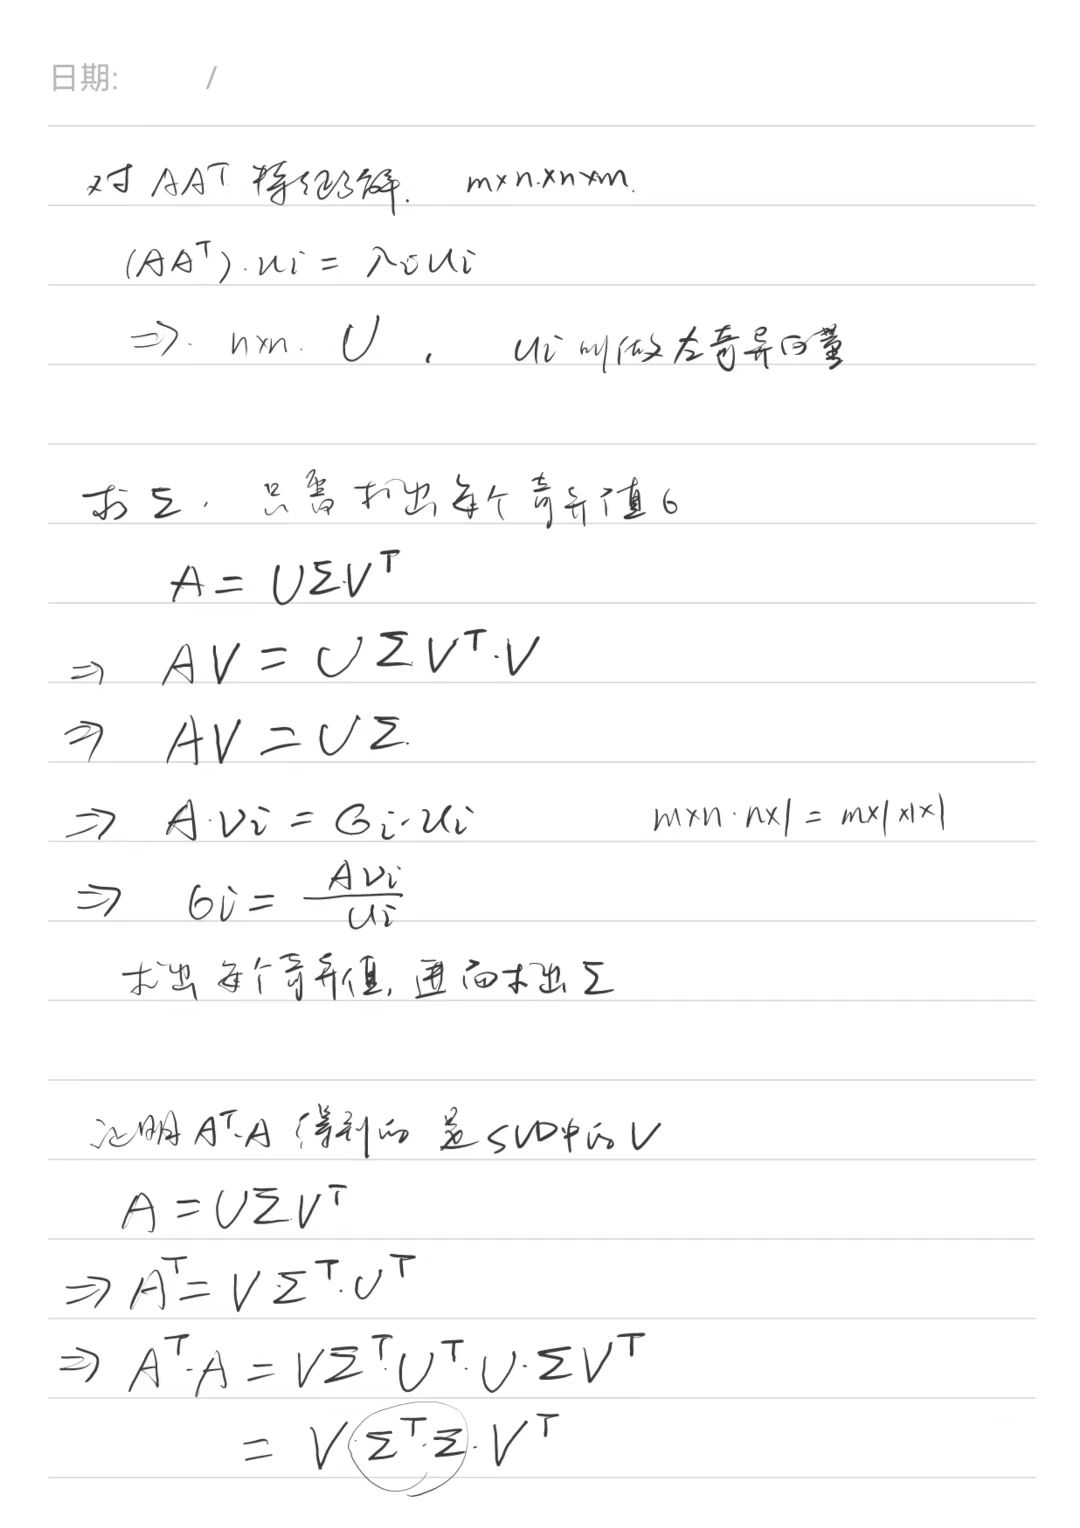 日期: /
对 AAᵀ 特征分解. m×n.×n×m.
(AAᵀ).ui = λi ui
⇒. n×n. U , ui 叫做左奇异向量
求Σ, 只需求出每个奇异值σ
A = UΣVᵀ
⇒ AV = UΣVᵀ·V
⇒ AV = UΣ.
⇒ A·vi = σi·ui m×n·n×1 = m×1×1×1
⇒ σi = Avi / ui
求出每个奇异值, 进而求出Σ
证明Aᵀ·A 得到的是SVD中的V
A = UΣVᵀ
⇒ Aᵀ = VΣᵀ·Uᵀ
⇒ Aᵀ·A = VΣᵀ·Uᵀ·U·ΣVᵀ
= V·Σᵀ·Σ·Vᵀ